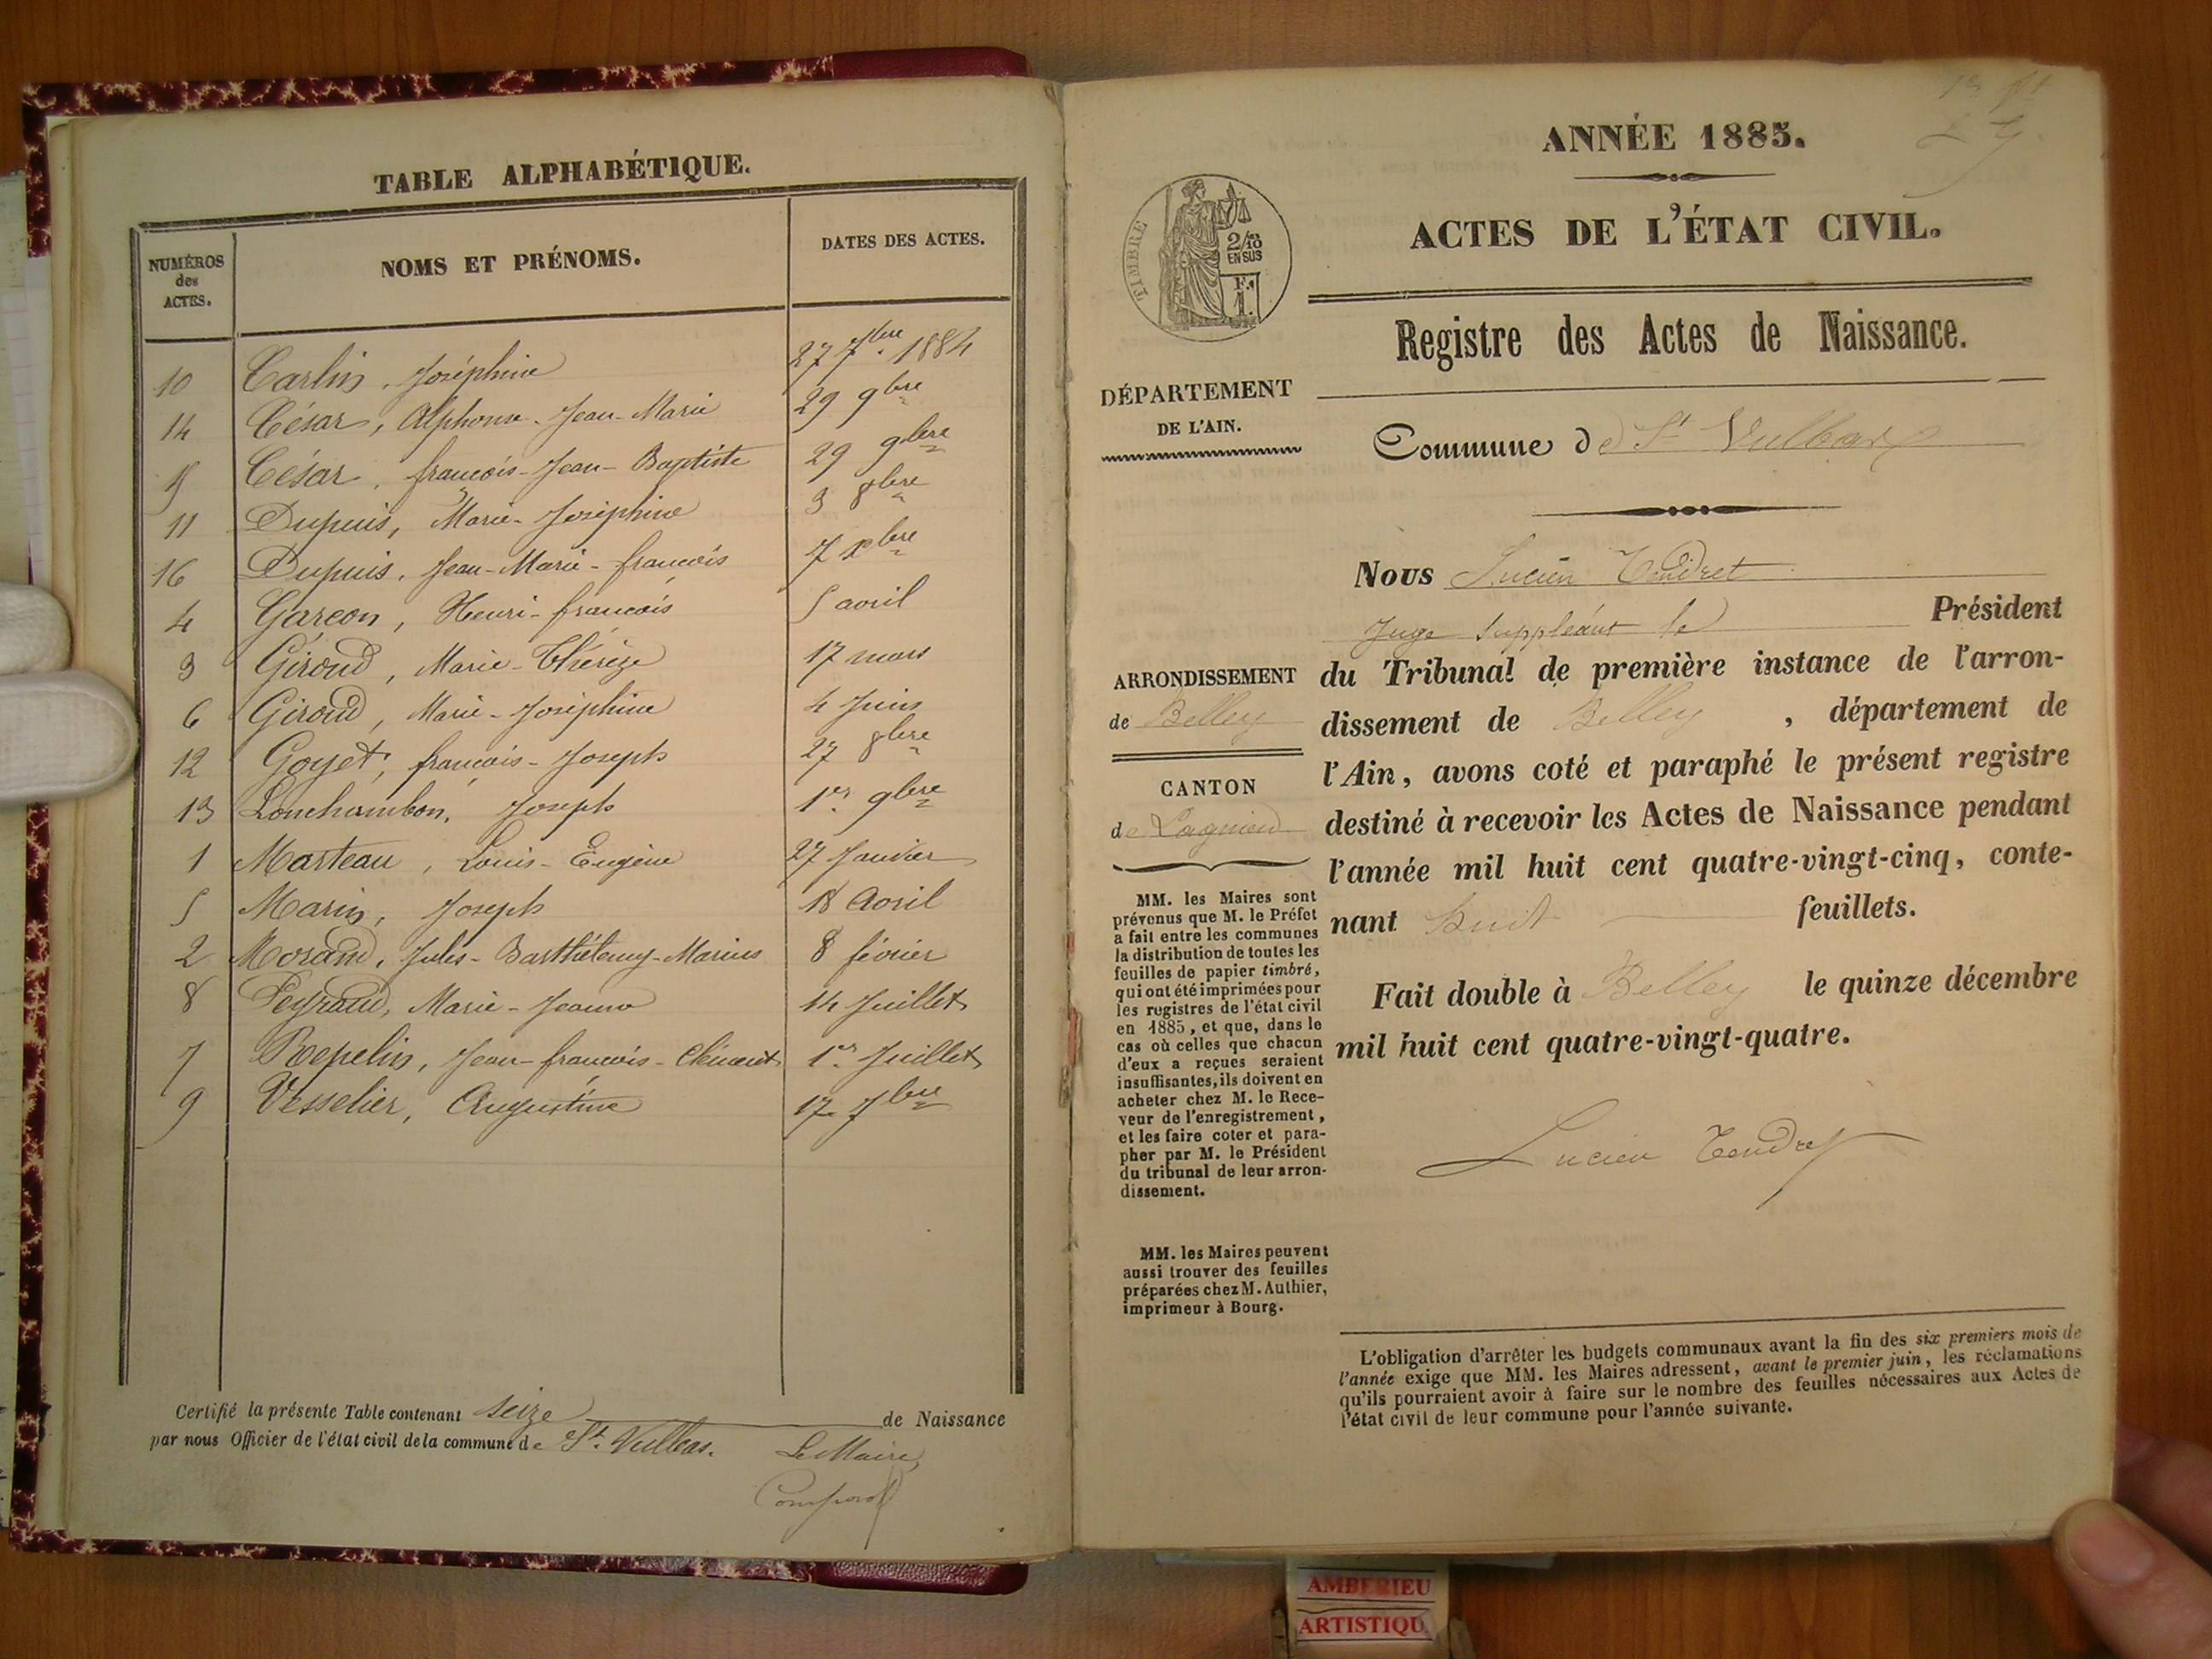 TABLE ALPHABÉTIQUE.
NUMÉROS
des
ACTES.
NOMS ET PRÉNOMS.
DATES DES ACTES.
10 Carlin, Joséphine 27 7bre 1884
14 César, Alphonse-Jean-Marie 29 9bre
15 César, françois-Jean-Baptiste 29 9bre
11 Dupuis, Marie-Joséphine 3 8bre
16 Dupuis, Jean-Marie-françois 7 xbre
4 Garçon, Henri-françois 5 avril
3 Giroud, Marie-Thérèze 17 mars
6 Giroud, Marie-Joséphine 4 Juin
12 Goyet, françois-Joseph 27 8bre
13 Lonchambon, Joseph 1er 9bre
1 Marteau, Louis-Eugène 27 Janvier
5 Marin, Joseph 18 Avril
2 Morand, Jules-Barthélemy-Marius 8 février
8 Peyraud, Marie-Jeanne 14 Juillet
7 Jean-françois-Clément 1er Juillet
9 Vesselier, Augustine 17 7bre
Certifié la présente Table contenant seize de Naissance
par nous Officier de l'état civil de la commune de St. Vulbas.
Le Maire
ANNÉE 1885.
ACTES DE L'ÉTAT CIVIL.
TIMBRE
2/10
EN SUS
F.
1.
Registre des Actes de Naissance.
DÉPARTEMENT
DE L'AIN.
Commune de St Vulbas
Nous Lucien Tendret
Juge Suppléant le Président
du Tribunal de première instance de l'arron-
dissement de Belley, département de
l'Ain, avons coté et paraphé le présent registre
destiné à recevoir les Actes de Naissance pendant
l'année mil huit cent quatre-vingt-cinq, conte-
nant huit feuillets.
Fait double à Belley le quinze décembre
mil huit cent quatre-vingt-quatre.
Lucien Tendret
ARRONDISSEMENT
de Belley
CANTON
de Lagnieu
MM. les Maires sont
prévenus que M. le Préfet
a fait entre les communes
la distribution de toutes les
feuilles de papier timbré,
qui ont été imprimées pour
les registres de l'état civil
en 1885, et que, dans le
cas où celles que chacun
d'eux a reçues seraient
insuffisantes, ils doivent en
acheter chez M. le Rece-
veur de l'enregistrement,
et les faire coter et para-
pher par M. le Président
du tribunal de leur arron-
dissement.
MM. les Maires peuvent
aussi trouver des feuilles
préparées chez M. Authier,
imprimeur à Bourg.
L'obligation d'arrêter les budgets communaux avant la fin des six premiers mois de
l'année exige que MM. les Maires adressent, avant le premier juin, les réclamations
qu'ils pourraient avoir à faire sur le nombre des feuilles nécessaires aux Actes de
l'état civil de leur commune pour l'année suivante.
AMBERIEU
ARTISTIQU